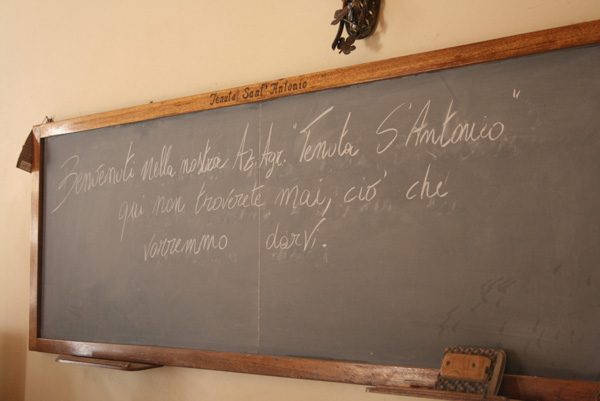 Tenuta Sant' Antonio
Benvenuti nella nostra Az. Agr. "Tenuta S. Antonio"
qui non troverete mai, ciò che
vorremmo darvi.